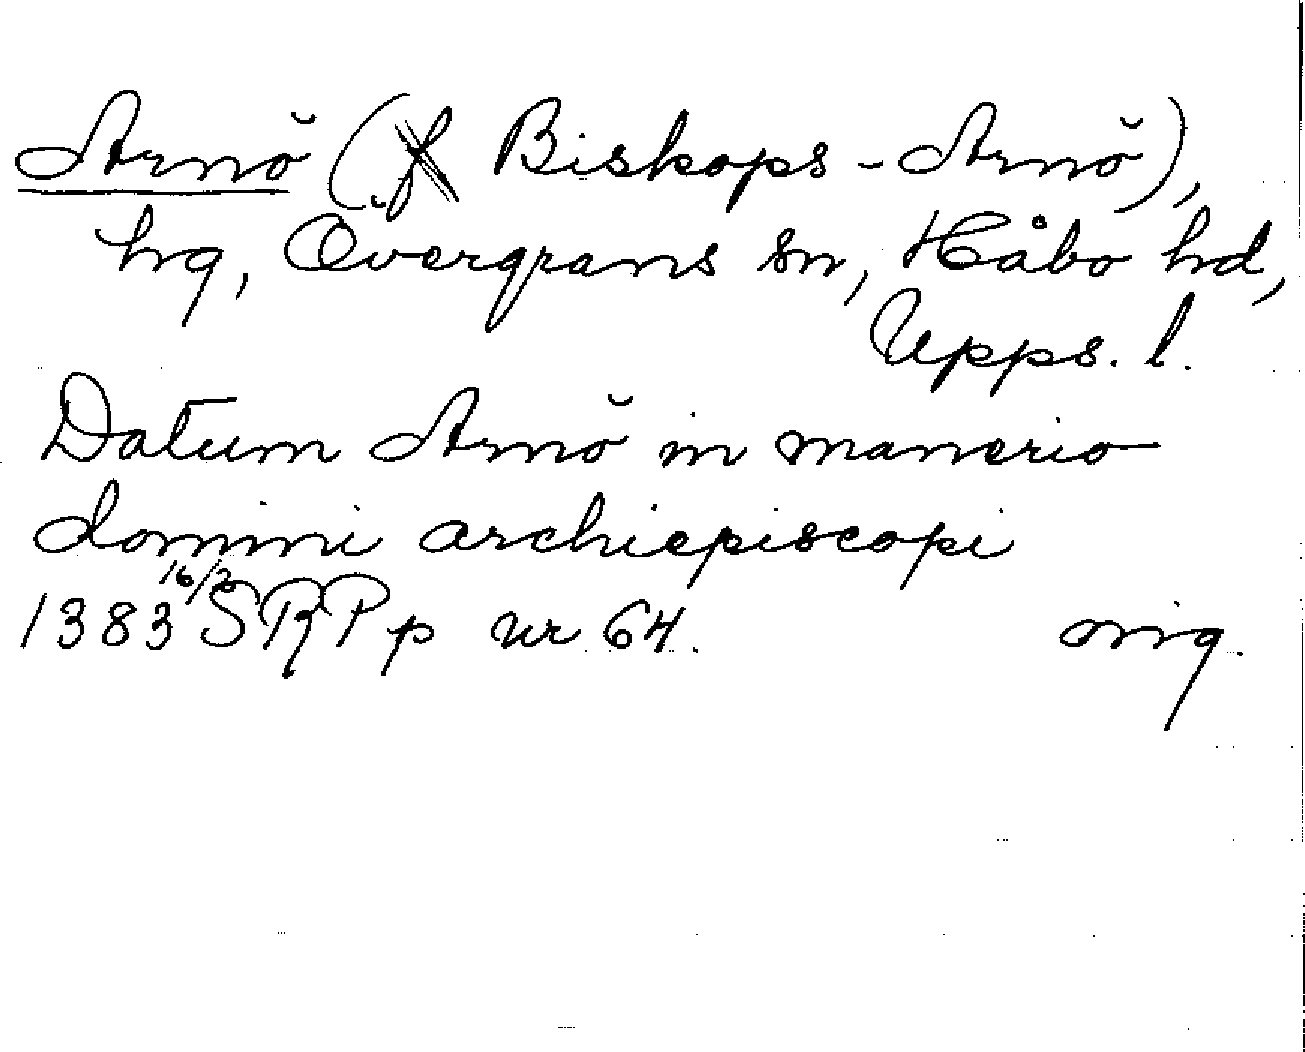 Arnö (Biskops-Arnö),
hg, Övergrans sn, Håbo hd,
Upps. l.
Datum Arnö in manerio
domini archiepiscopi
1383 16/2 SRPp nr 64. orig.